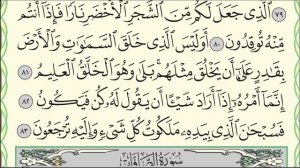 ٧٩ ٱلَّذِى جَعَلَ لَكُم مِّنَ ٱلشَّجَرِ ٱلْأَخْضَرِ نَارًا فَإِذَآ أَنتُم
مِّنْهُ تُوقِدُونَ ٨٠ أَوَلَيْسَ ٱلَّذِى خَلَقَ ٱلسَّمَٰوَٰتِ وَٱلْأَرْضَ
بِقَٰدِرٍ عَلَىٰٓ أَن يَخْلُقَ مِثْلَهُم بَلَىٰ وَهُوَ ٱلْخَلَّٰقُ ٱلْعَلِيمُ ٨١
إِنَّمَآ أَمْرُهُۥٓ إِذَآ أَرَادَ شَيْـًٔا أَن يَقُولَ لَهُۥ كُن فَيَكُونُ ٨٢
فَسُبْحَٰنَ ٱلَّذِى بِيَدِهِۦ مَلَكُوتُ كُلِّ شَىْءٍ وَإِلَيْهِ تُرْجَعُونَ ٨٣
سُورَةُ ٱلصَّافَّاتِ